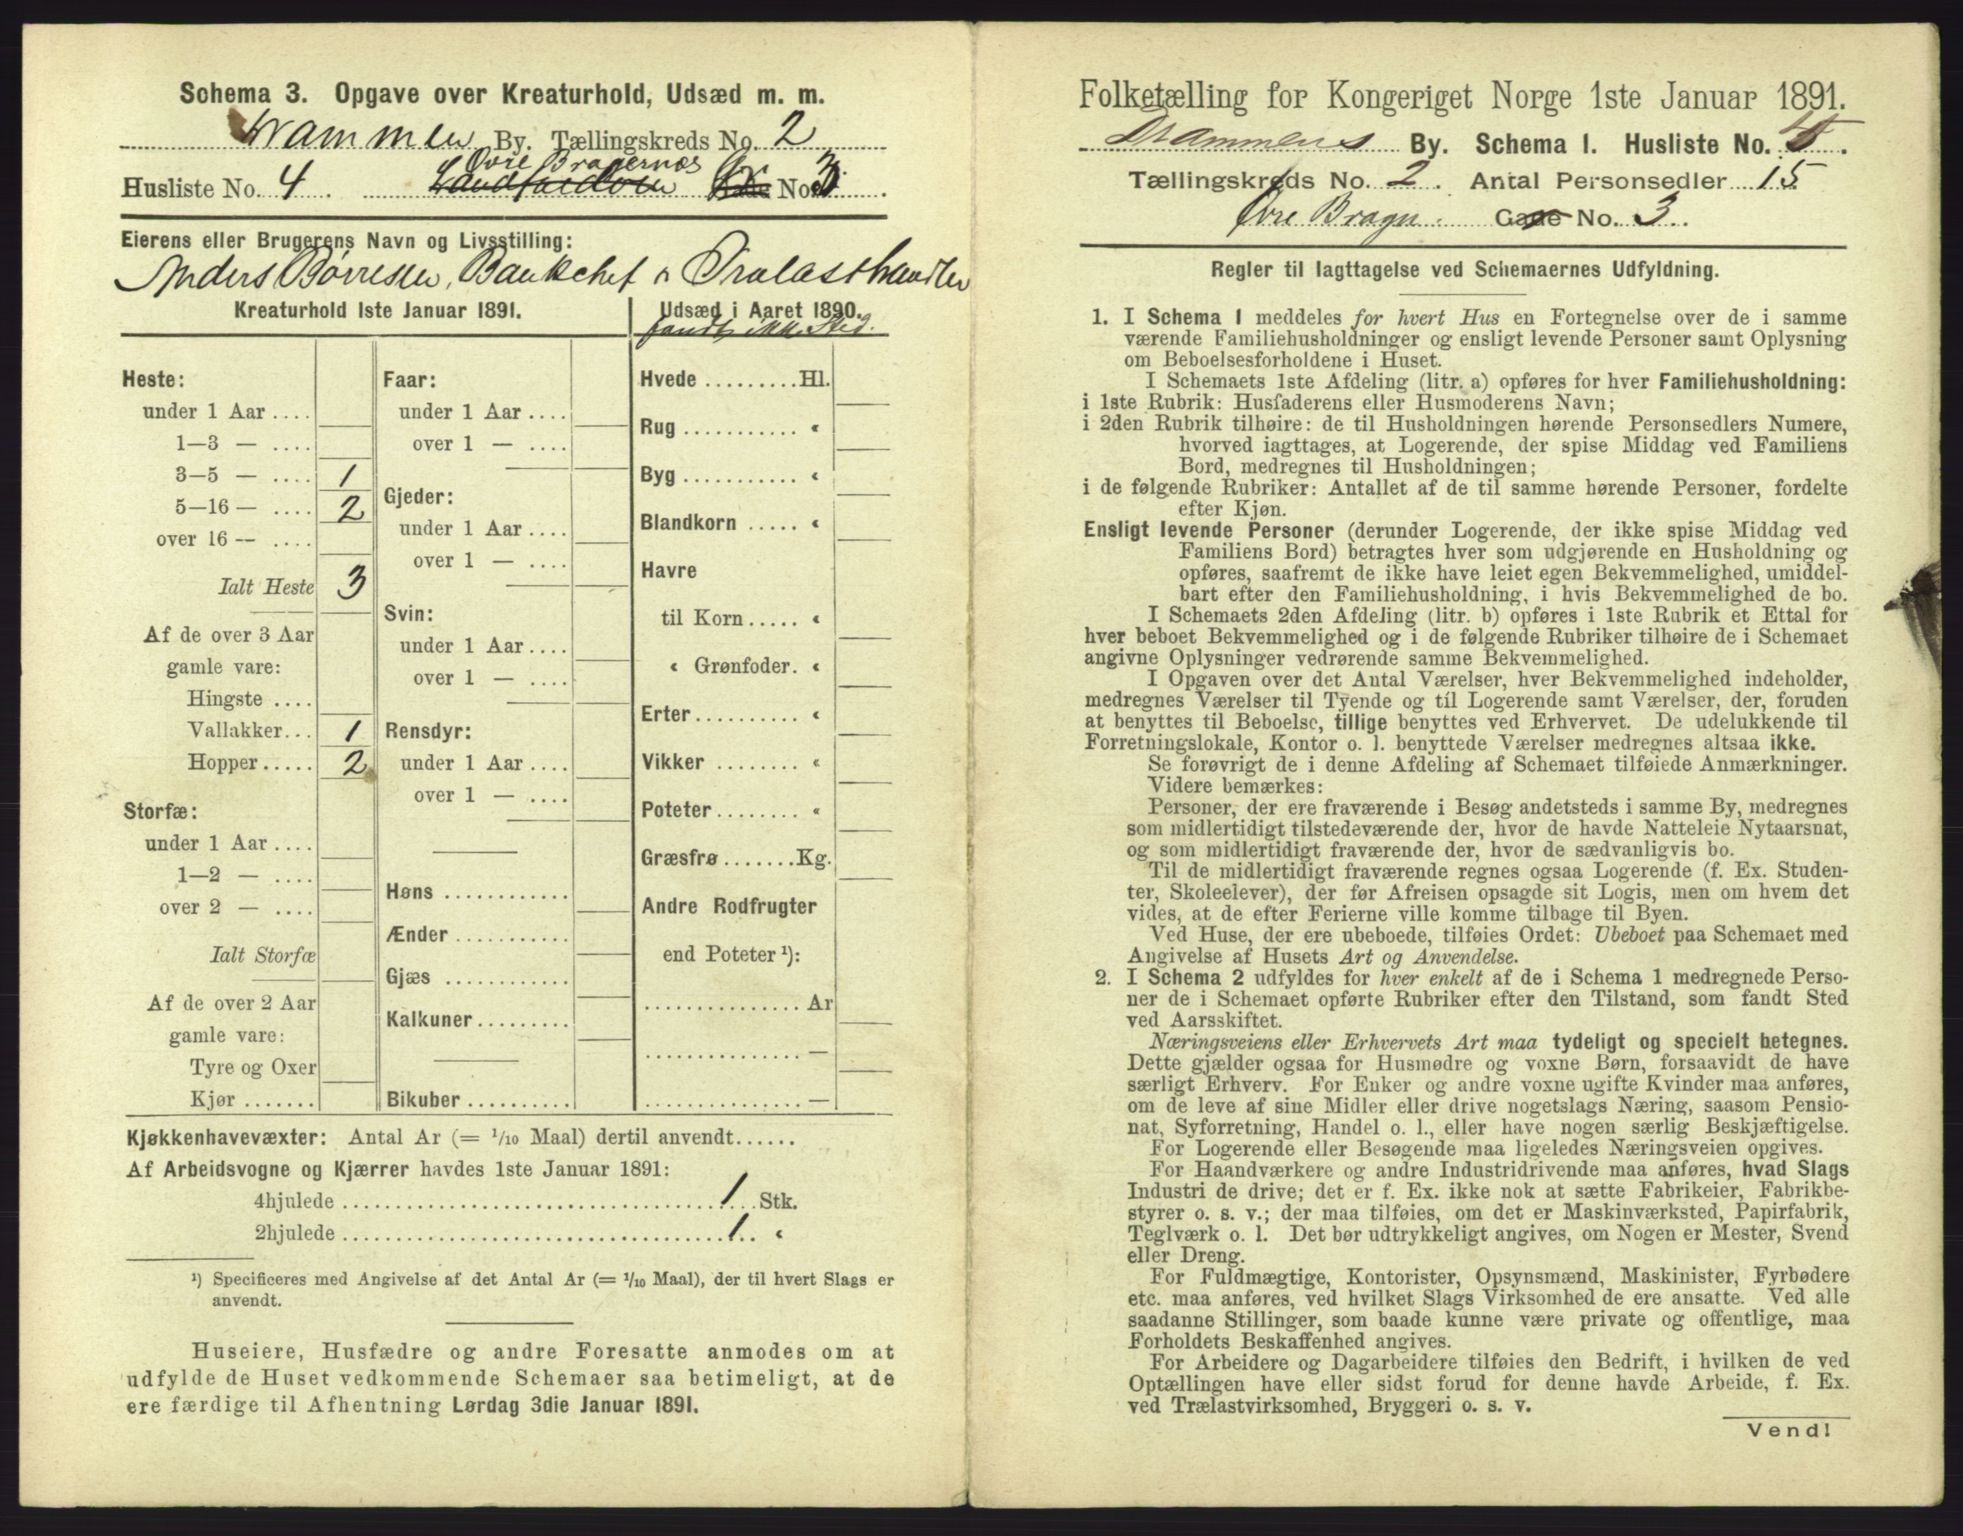 Schema 3. Opgave over Kreaturhold, Udsæd m. m.
Drammen By. Tællingskreds No. 2
Øvre Bragernæs
Husliste No. 4 Gade No. 3
Eierens eller Brugerens Navn og Livsstilling:
Anders Børresen, Bankchef & Trælasthandler
Kreaturhold 1ste Januar 1891.
Heste:
under 1 Aar ....
1—3 — ....
3—5 — .... 1
5—16 — .... 2
over 16 — ....
Ialt Heste 3
Af de over 3 Aar
gamle vare:
Hingste ....
Vallakker... 1
Hopper..... 2
Storfæ:
under 1 Aar ....
1—2 — ....
over 2 — ....
Ialt Storfæ
Af de over 2 Aar
gamle vare:
Tyre og Oxer
Kjør .......
Faar:
under 1 Aar ....
over 1 — ....
Gjeder:
under 1 Aar ....
over 1 — ....
Svin:
under 1 Aar ....
over 1 — ....
Rensdyr:
under 1 Aar ....
over 1 — ....
Høns ............
Ænder ...........
Gjæs ............
Kalkuner.........
Bikuber ..........
Udsæd i Aaret 1890.
fandt ikke Sted.
Hvede .........Hl.
Rug ........... «
Byg ........... «
Blandkorn ..... «
Havre
til Korn ..... «
« Grønfoder. «
Erter.......... «
Vikker ........ «
Poteter........ «
Græsfrø .......Kg.
Andre Rodfrugter
end Poteter ¹):
............... Ar
............... —
............... —
Kjøkkenhavevæxter: Antal Ar (= 1/10 Maal) dertil anvendt......
Af Arbeidsvogne og Kjærrer havdes 1ste Januar 1891:
4hjulede .................... 1 Stk.
2hjulede .................... 1 «
¹) Specificeres med Angivelse af det Antal Ar (= 1/10 Maal), der til hvert Slags er
anvendt.
Huseiere, Husfædre og andre Foresatte anmodes om at
udfylde de Huset vedkommende Schemaer saa betimeligt, at de
ere færdige til Afhentning Lørdag 3die Januar 1891.
Folketælling for Kongeriget Norge 1ste Januar 1891.
Drammens By. Schema 1. Husliste No. 4.
Tællingskreds No. 2. Antal Personsedler 15
Øvre Bragn. Gade No. 3.
Regler til Iagttagelse ved Schemaernes Udfyldning.
1. I Schema 1 meddeles for hvert Hus en Fortegnelse over de i samme
værende Familiehusholdninger og ensligt levende Personer samt Oplysning
om Beboelsesforholdene i Huset.
I Schemaets 1ste Afdeling (litr. a) opføres for hver Familiehusholdning:
i 1ste Rubrik: Husfaderens eller Husmoderens Navn;
i 2den Rubrik tilhøire: de til Husholdningen hørende Personsedlers Numere,
hvorved iagttages, at Logerende, der spise Middag ved Familiens
Bord, medregnes til Husholdningen;
i de følgende Rubriker: Antallet af de til samme hørende Personer, fordelte
efter Kjøn.
Ensligt levende Personer (derunder Logerende, der ikke spise Middag ved
Familiens Bord) betragtes hver som udgjørende en Husholdning og
opføres, saafremt de ikke have leiet egen Bekvemmelighed, umiddel-
bart efter den Familiehusholdning, i hvis Bekvemmelighed de bo.
I Schemaets 2den Afdeling (litr. b) opføres i 1ste Rubrik et Ettal for
hver beboet Bekvemmelighed og i de følgende Rubriker tilhøire de i Schemaet
angivne Oplysninger vedrørende samme Bekvemmelighed.
I Opgaven over det Antal Værelser, hver Bekvemmelighed indeholder,
medregnes Værelser til Tyende og til Logerende samt Værelser, der, foruden
at benyttes til Beboelse, tillige benyttes ved Erhvervet. De udelukkende til
Forretningslokale, Kontor o. l. benyttede Værelser medregnes altsaa ikke.
Se forøvrigt de i denne Afdeling af Schemaet tilføiede Anmærkninger.
Videre bemærkes:
Personer, der ere fraværende i Besøg andetsteds i samme By, medregnes
som midlertidigt tilstedeværende der, hvor de havde Natteleie Nytaarsnat,
og som midlertidigt fraværende der, hvor de sædvanligvis bo.
Til de midlertidigt fraværende regnes ogsaa Logerende (f. Ex. Studen-
ter, Skoleelever), der før Afreisen opsagde sit Logis, men om hvem det
vides, at de efter Ferierne ville komme tilbage til Byen.
Ved Huse, der ere ubeboede, tilføies Ordet: Ubeboet paa Schemaet med
Angivelse af Husets Art og Anvendelse.
2. I Schema 2 udfyldes for hver enkelt af de i Schema 1 medregnede Perso-
ner de i Schemaet opførte Rubriker efter den Tilstand, som fandt Sted
ved Aarsskiftet.
Næringsveiens eller Erhvervets Art maa tydeligt og specielt betegnes.
Dette gjælder ogsaa for Husmødre og voxne Børn, forsaavidt de have
særligt Erhverv. For Enker og andre voxne ugifte Kvinder maa anføres,
om de leve af sine Midler eller drive nogetslags Næring, saasom Pensio-
nat, Syforretning, Handel o. l., eller have nogen særlig Beskjæftigelse.
For Logerende eller Besøgende maa ligeledes Næringsveien opgives.
For Haandværkere og andre Industridrivende maa anføres, hvad Slags
Industri de drive; det er f. Ex. ikke nok at sætte Fabrikeier, Fabrikbe-
styrer o. s. v.; der maa tilføies, om det er Maskinværksted, Papirfabrik,
Teglværk o. l. Det bør udtrykkeligt angives, om Nogen er Mester, Svend
eller Dreng.
For Fuldmægtige, Kontorister, Opsynsmænd, Maskinister, Fyrbødere
etc. maa anføres, ved hvilket Slags Virksomhed de ere ansatte. Ved alle
saadanne Stillinger, som baade kunne være private og offentlige, maa
Forholdets Beskaffenhed angives.
For Arbeidere og Dagarbeidere tilføies den Bedrift, i hvilken de ved
Optællingen have eller sidst forud for denne havde Arbeide, f. Ex.
ved Trælastvirksomhed, Bryggeri o. s. v.
Vend!